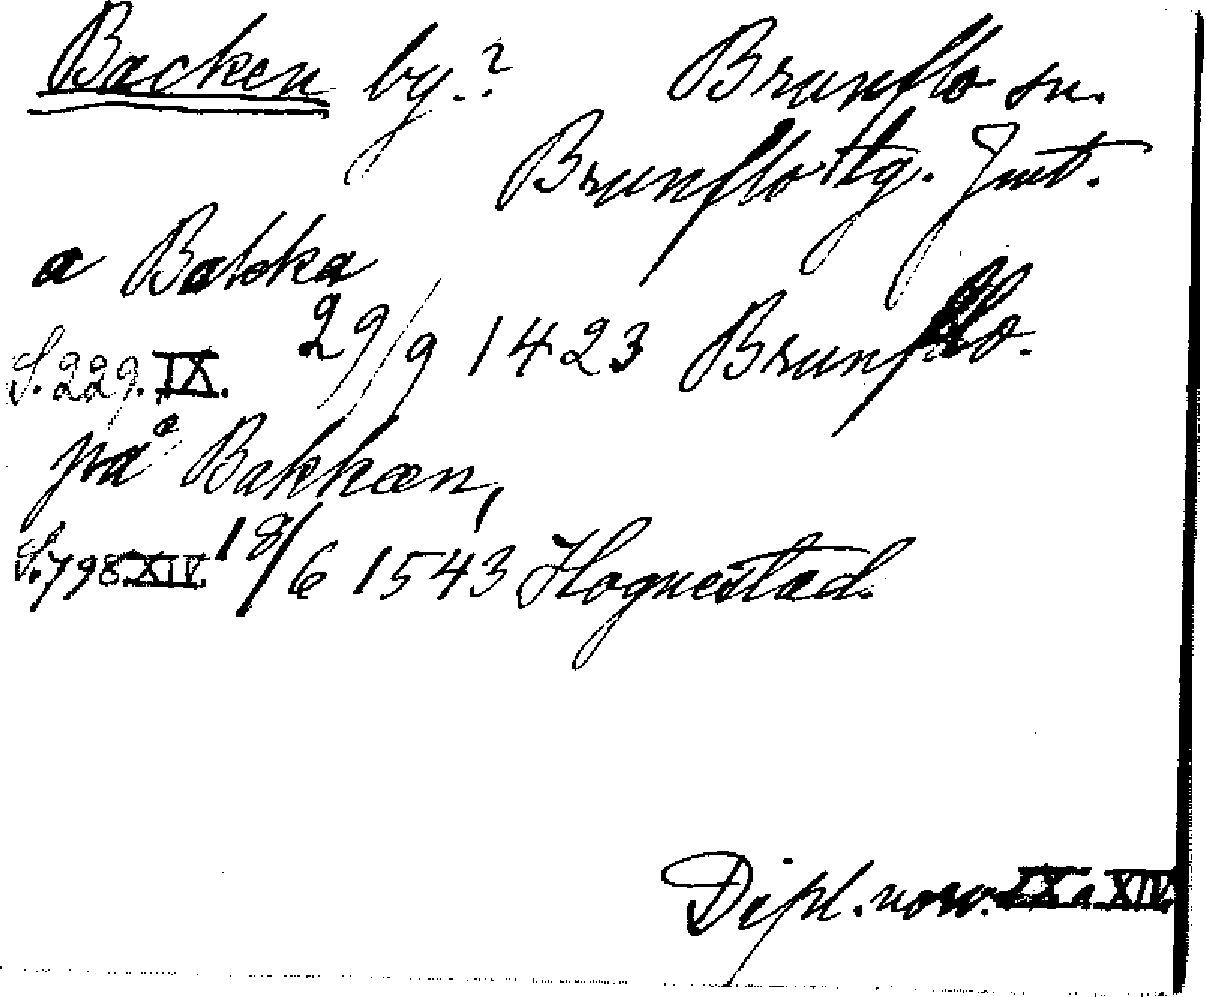 Backen by.? Brunflo sn.
Brunflo tg. Jmt.
a Bakka
S. 229. IX. 29/9 1423 Brunflo.
på Bakkæn,
S. 798 XIV. 18/6 1543 Hognestad.
Dipl. norv. IX a XIV.